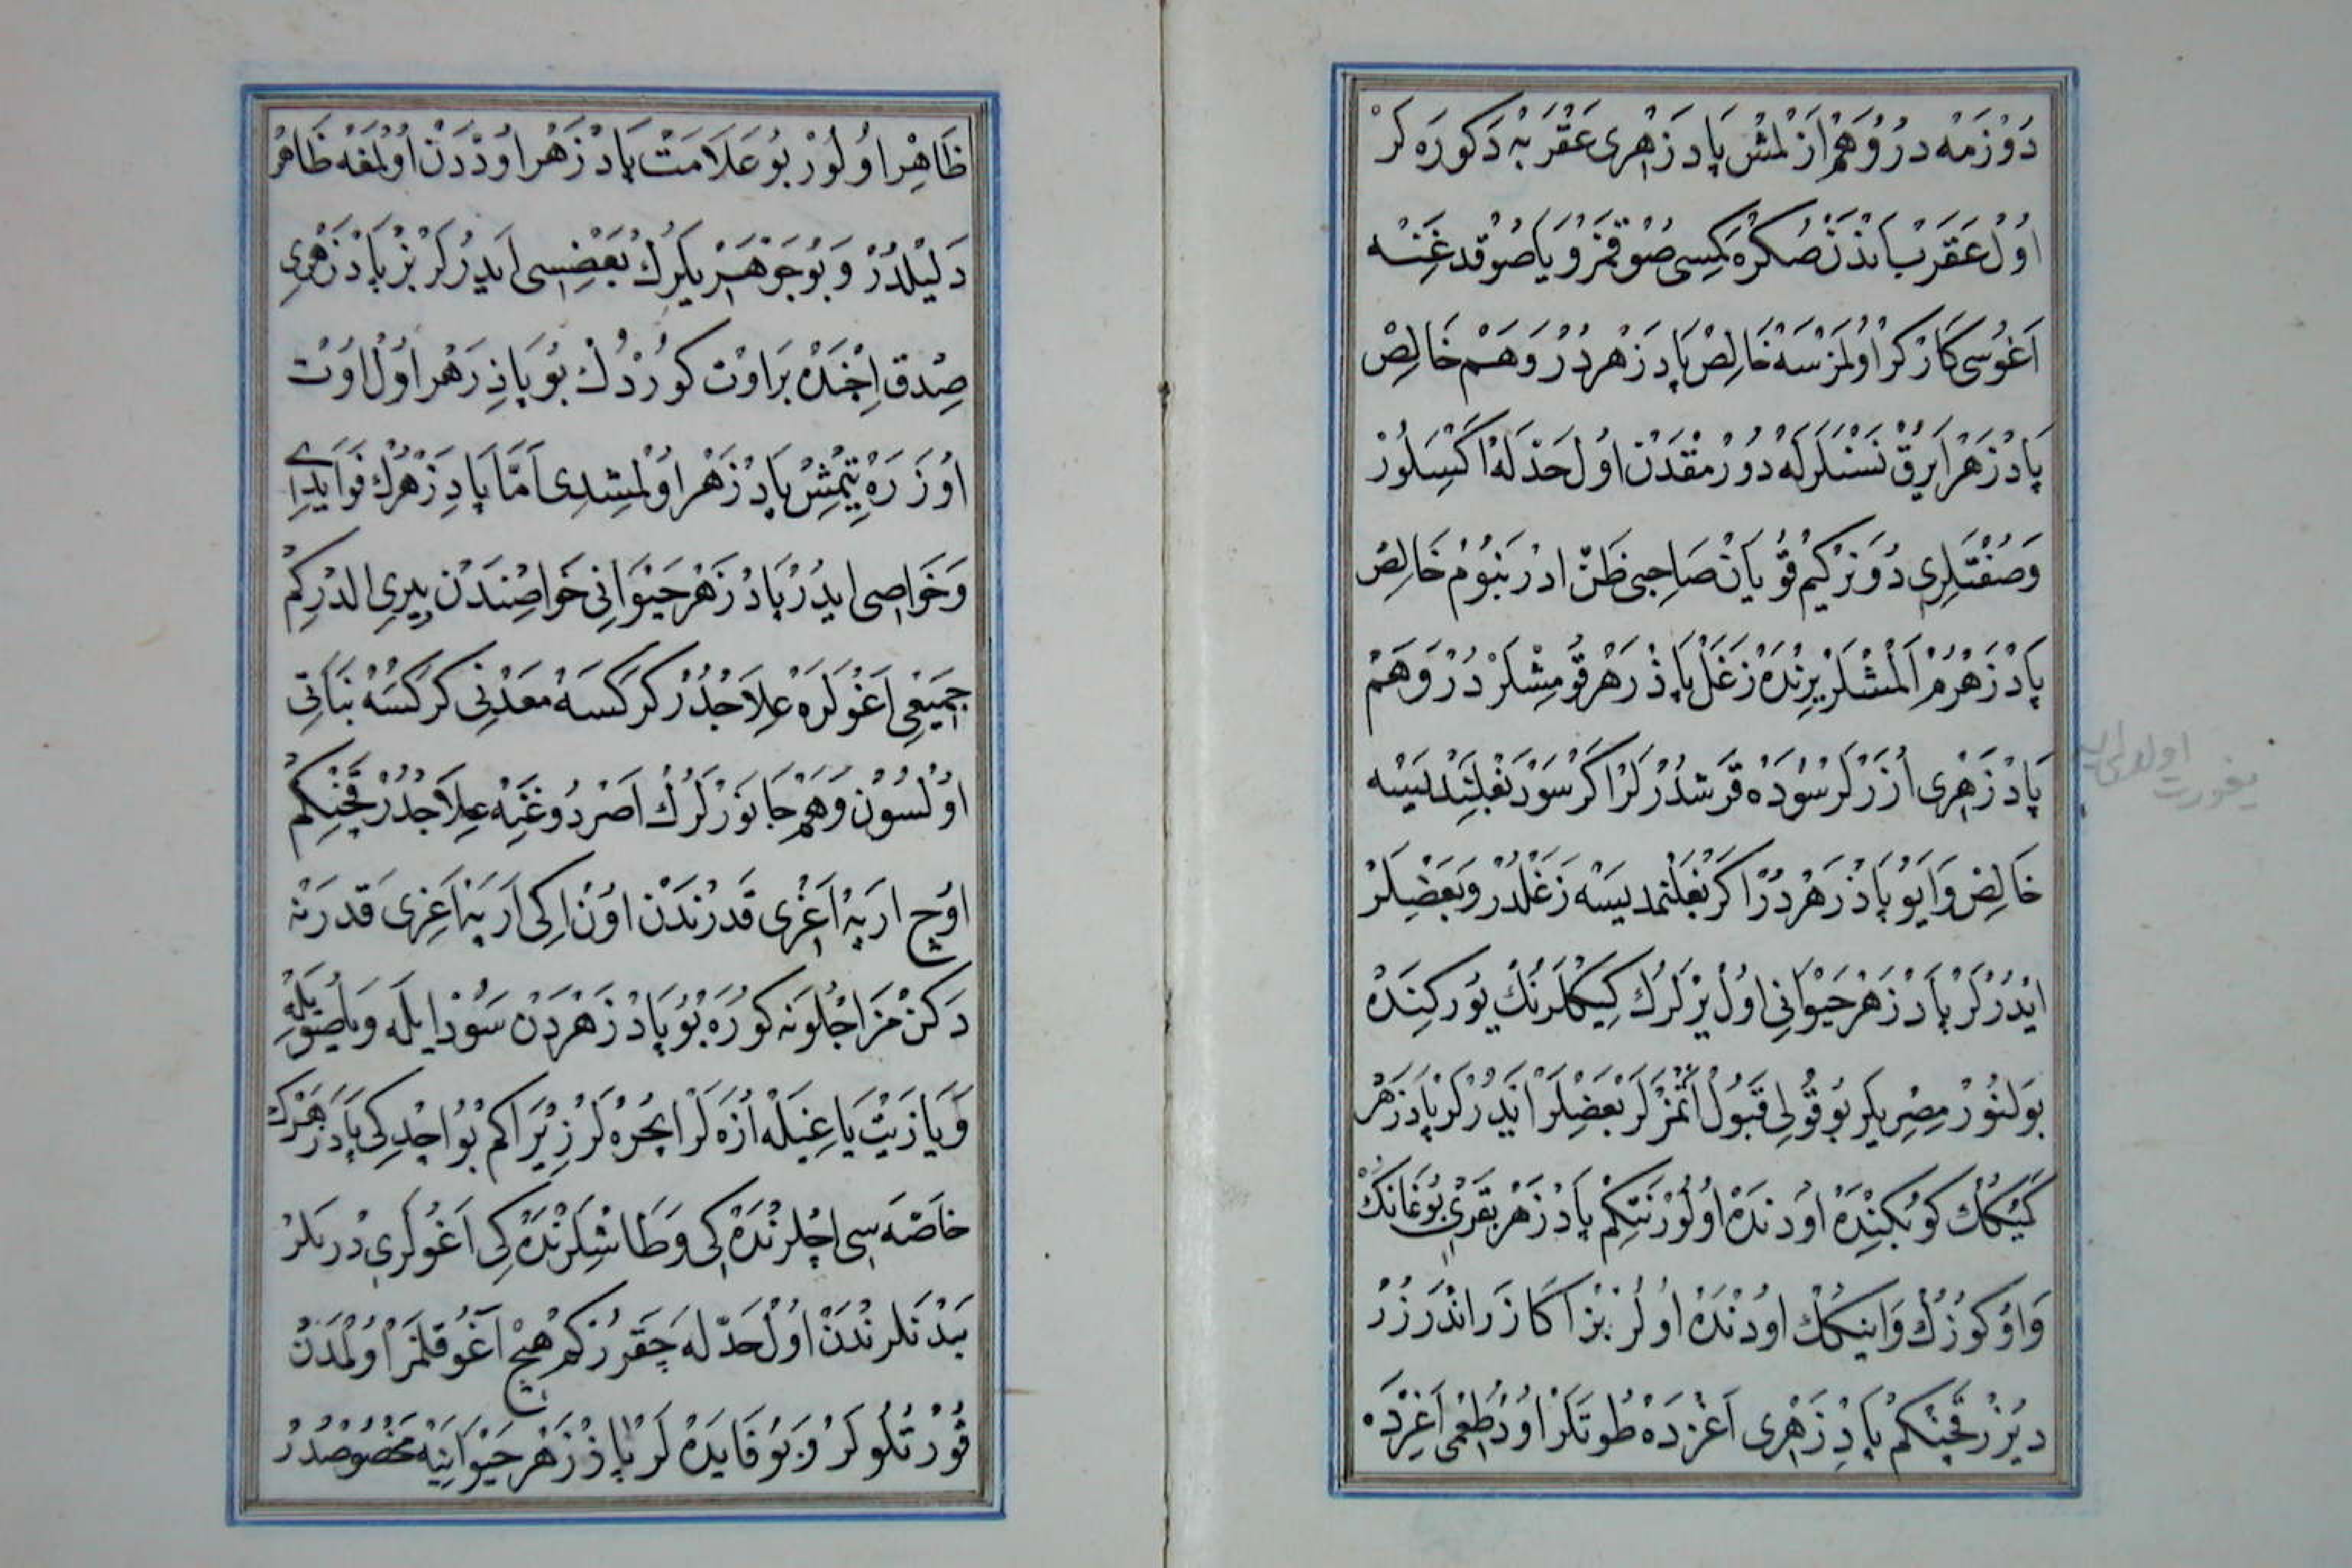 دَوْزَمْه دِرْوُهَمْ اَزْلمشْ پَادِ زَهْرِى عَقْرَبْه دَكورَه لَرْ
اوُلْ عَقْرَبْ اَنْدَنْ صُكْرَه كِمسِى صُوْقمَزْ وُ يَا صُوْقدغِنْه
اَغوُسِى كَارْكَرْ اوُلمَزْسَه خَالِصْ پَادِ زَهْردُرْ وَهَمْ خَالِصْ
پَادْ زَهْر اَيرِقْ نَسْنَلَرْلَه دوُرْمقْدَنْ اوُل حَدّلَه اَكْسِلوُرْ
وَصِفْتَلرِى دوُنَرْكِيمْ قوُيَانْ صَاحِبى ظَنّ ادَرْ بَنوُمْ خَالِصْ
پَادْ زَهْرُمْ اَلْمشْلَرْ يِرِنْدَه زَغَلْ پَادْ زَهْر قوُمِشْلَرْدُرْ وَهَمْ
پَادْ زَهْرِى اَزَرْلَرْ سوُدَه قَرِشدُرْلَرْ اَكَرْ سوُدْ يغْلَنْديسَه
خَالِصْ وَايوُ پَادْ زَهْردُرْ اَكَرْ يغْلَنْمديسَه زَغَلْدُرْ وَبَعْضِلَرْ
ايْدُرْلَرْ پَادْ زَهْر حَيْوَانِى اوُلْ يَرْلَرُكْ كَيِكْلَرنُكْ يوُركِنْدَه
بوُلنوُرْ مِصْرِيلَر بوُ قَوْلِى قَبوُلْ اتْمَزْلَرْ بَعْضِلَرْ ايْدُرْلَرْ پَادْ زَهْر
كَيِكُكْ كوُيكِنْدَه اوُدنْدَه اوُلوُرْ نِتكِمْ پَادْ زَهْر بَقَرِى بوُغَانُكْ
وَاوُكوُزُكْ وَاينَكُكْ اوُدنْدَه اوُلوُرْ بِزْ اَكَا زَرْ اندَرَزْ
دِيرُزْ قَچَنْكِمْ پَادِ زَهْرِى اَغزْدَه طوُتَلَرْ اوُدْ طَعْمِى اَغِزْدَه
ظَاهِرْ اوُلوُرْ بوُ عَلَامَتْ پَادْ زَهْر اوُدْدَنْ اوُلمَغَه ظَاهِرْ
دَلِيلْدُرْ وَبوُ جَوْهَرِيلَرُكْ بَعْضِسِى ايدُرْلَرْ بِزْ پَادْ زَهْرِى
صِدقْ اِچِنْدَه بَرْ اوُتْ كوُرْدُكْ بوُ پَادِ زَهْر اوُلْ اوُتْ
اوُزَرَه يِتمِشْ پَادْ زَهْر اوُلْمِشدِى اَمَّا پَادِ زَهْرُكْ فَوَايدِى
وَخَوَاصِى ايدُرْ پَادْ زَهْر حَيْوَانِى خَوَاصِنْدَنْ بِيرِى الدُرْكِمْ
جَمِيعِ اَغوُلَرَه عِلَاجْدُرْ كَرَكسَه مَعْدنِى كَرَكسَه نبَاتِى
اوُلسوُنْ وَهَمْ جَانوَرْلَرُكْ اصَرْدوُغِنَه عِلَاجْدُرْ قَچَنْكِمْ
اوُچْ اَرْپَه اَغرِى قَدرنْدَنْ اوُنْ اكِى اَرْپَه اَغِرِى قَدرنَه
دَكنْ مَزَاجلوُنَه كوُرَه بوُ پَادْ زَهْردَنْ سوُدْ ايلَه وَيَا صوُيلَه
وَيَا زَيْتْ يَاغِيلَه اَزَه لَرْ ايچُرَه لَرْ زِيرَاكِمْ بوُ اِچدكِى پَادْ زَهْرُكْ
خَاصّه سِى اِچْلرنْدَه كِى وَطَاشْلَرنْدَه كِى اَغوُلَرِى دِرِيلَرْ
بَدنْلَرنْدَنْ اوُلْ حَدّلَه چِقَررْكِمْ هِيچْ اَغوُ قَلمَزْ اوُلْمَدَنْ
قوُرْتُلوُلَرْ وَبوُ فَايدَه لَرْ پَادْ زَهْر حَيْوَانِيَه مَخْصوُصْدُرْ